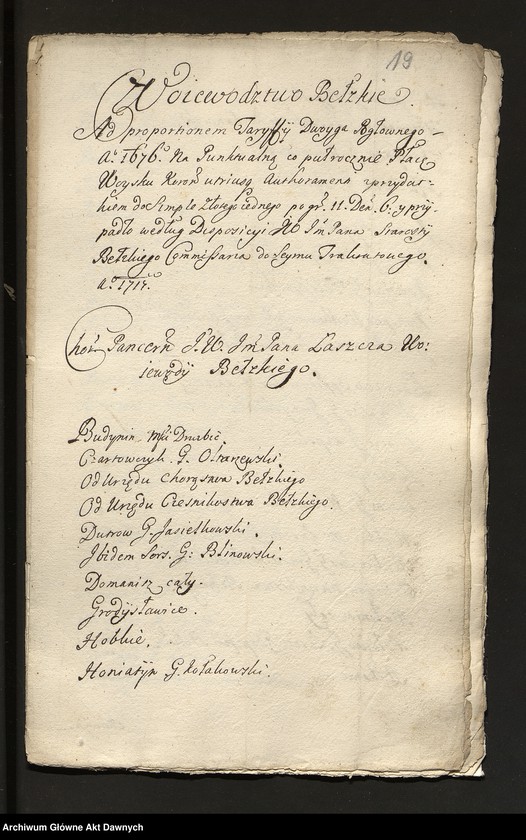 19
Woiewodztwo Bełzkie.
Ad proportionem Taryffy Dwoyga Pogłownego
Aº 1676. Na Punktualną co pułrocznie Płacę
Woysku Koroñ utriusq Authoramenti zprzydat-
kiem do Simplo Złłego iednego po gr. 11. Deñ 6. y przy-
padło według Dispozycyi JWo Jm Pana Starosty
Bełzkiego Commissarza do Seymu Traktatowego.
Aº 1717.
Chor. Pancerñ J.W. Jm Pana Laszcza Wo:
iewody Bełzkiego.
Budynin, Drurbic.
Czartowczyk. G. Olszewski.
Od Urzędu Chorąstwa Bełzkiego
Od Urzędu Czesnikostwa Bełzkiego.
Dutrow G. Jasielkowski.
Ibidem Sors. G: Blinowski.
Domanisz cały.
Grodysławice.
Hobkie.
Honiatyn G. Kołakowski.
Archiwum Główne Akt Dawnych